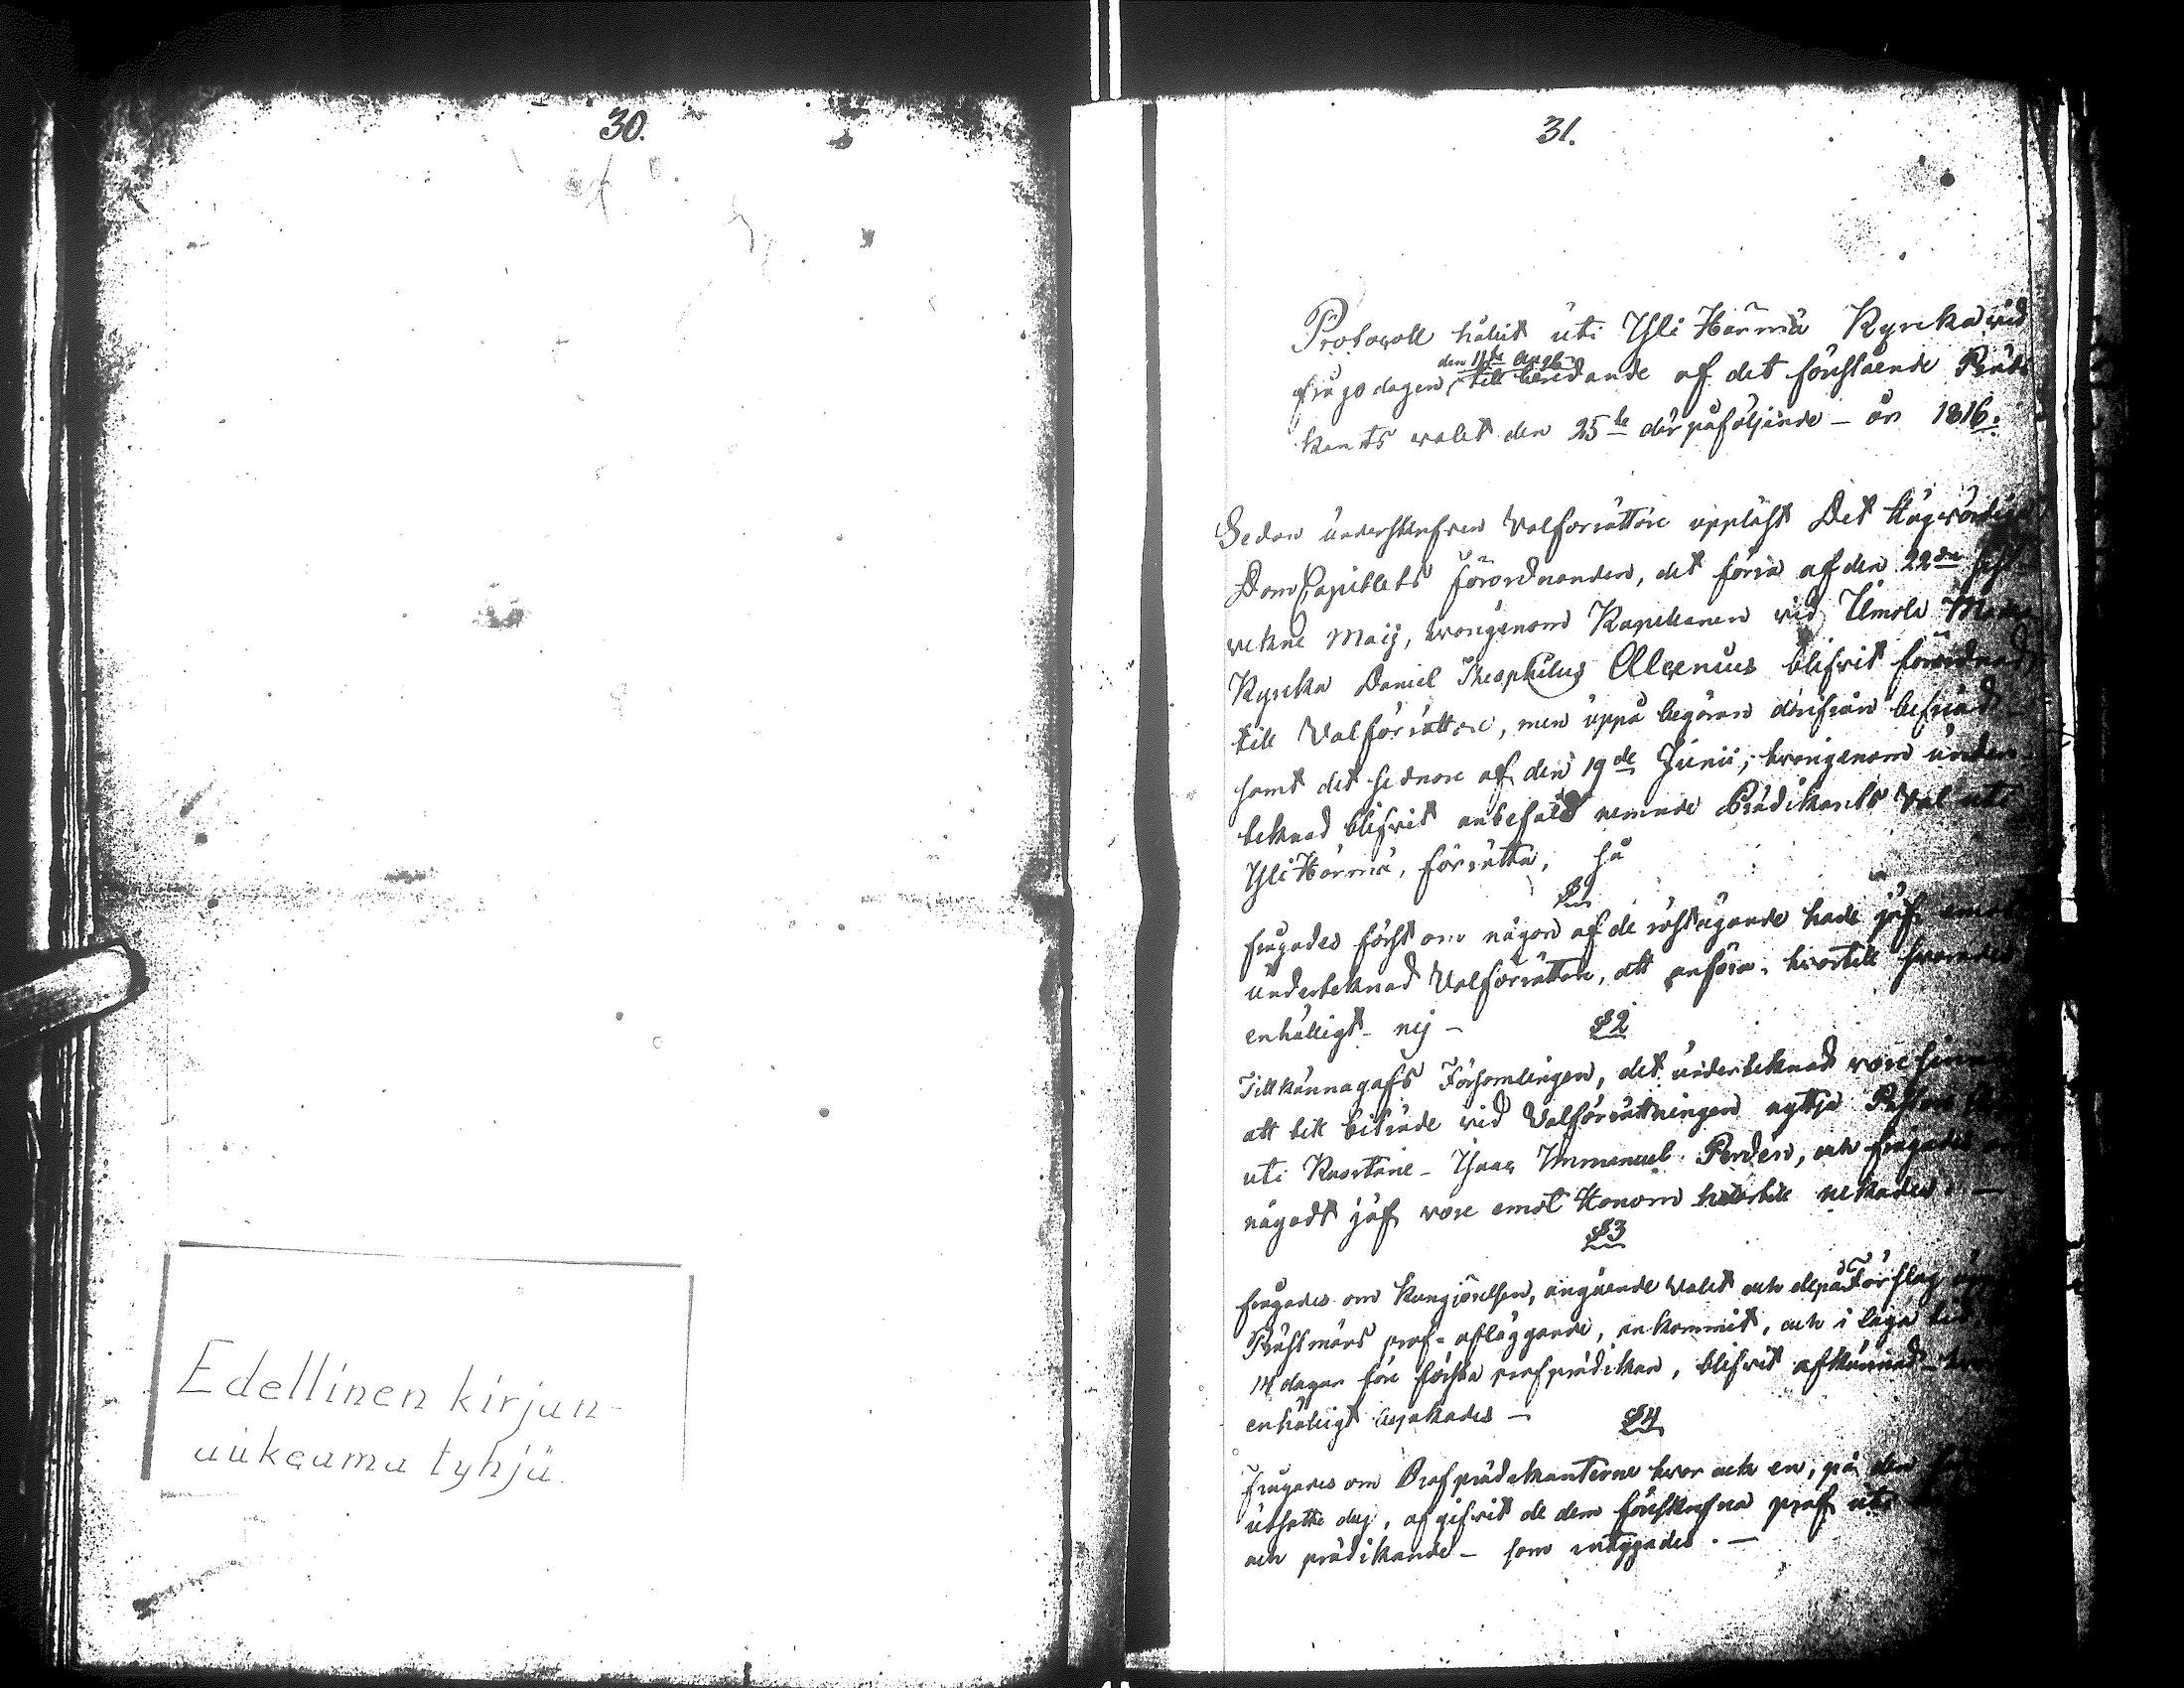 30.
Edellinen kirjan-
aukeama tyhjä.
31.
Protocoll hållit uti Yli Härmä Kyrcka vid
fråge dagen, till beredande af det förestående Prädi
den 11te Aug.
kants valet den 25te där påföljande – år 1816.
Sedan underskrefven Valförrättare uppläst Det Högvördige
Dom Capitlets Förordnanden, det förra af den 22dra sist-
vekne Maij, hvarigenom Kapellanen vid Ümola Moder
Kyrcka Daniel Theophilus Alcenius blifvit förordnad
till Valförrättare, men uppå begäran därifrån befriad –
samt det sednare af den 19de Junii, hvarigenom under-
teknad blifvit anbefald nemnde Prädikants Val uti
Yli Härmä, förrätta, så
§ 1
frågades först om någon af de röstägande hade jäf emot
underteknad Valförrättare, att anföra, hvartill svarades
enhälligt – nej –
§ 2
Tillkännagafs Församlingen, det underteknad vore sinnad
att till biträde vid Valförrättningen nyttja Pastorn
uti Kuortane – Isaac Immanuel Perdén, och frågades om
någodt jäf vore emot Honom hvartill nekades. –
§ 3
frågades om Kungjörelsen, angående Valet och de på Förslag
Prästmäns prof-afläggande, ankommit, och i laga tid,
14 dagar före första profprädikan, blifvit afkunnad –
enhälligt bejakades –
§ 4
Frågades om Profprädikanterne hvar och en, på den
utsatte dag, afgifvit de dem föreskrefna prof uti
och prädikande – som intygades. –